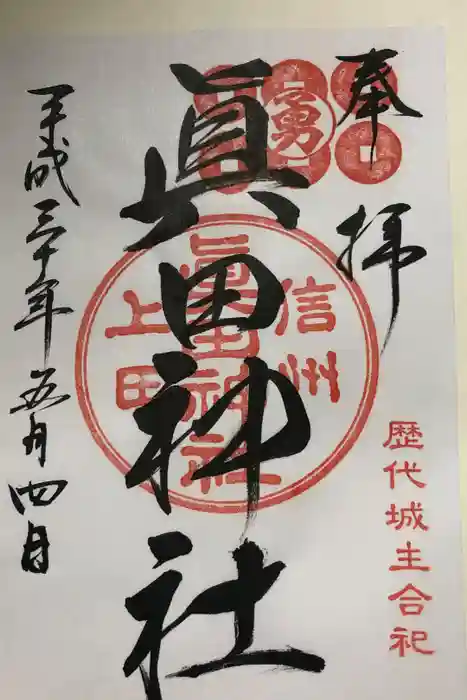 奉拝
歴代城主合祀
勇
眞田神社
信州
眞田神社
上田
平成三十年五月四日